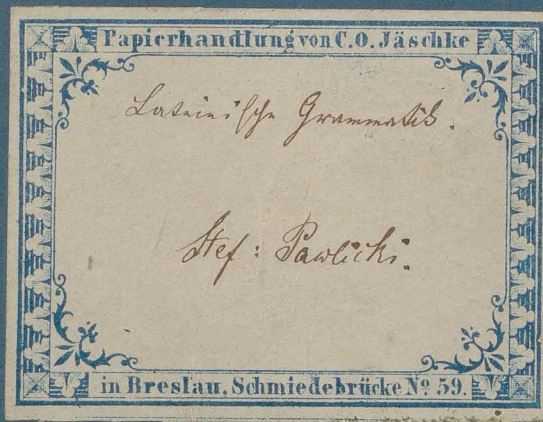 Papierhandlung von C.O. Jäschke
Lateinische Grammatik.
Stef: Pawlicki.
in Breslau, Schmiedebrücke No 59.